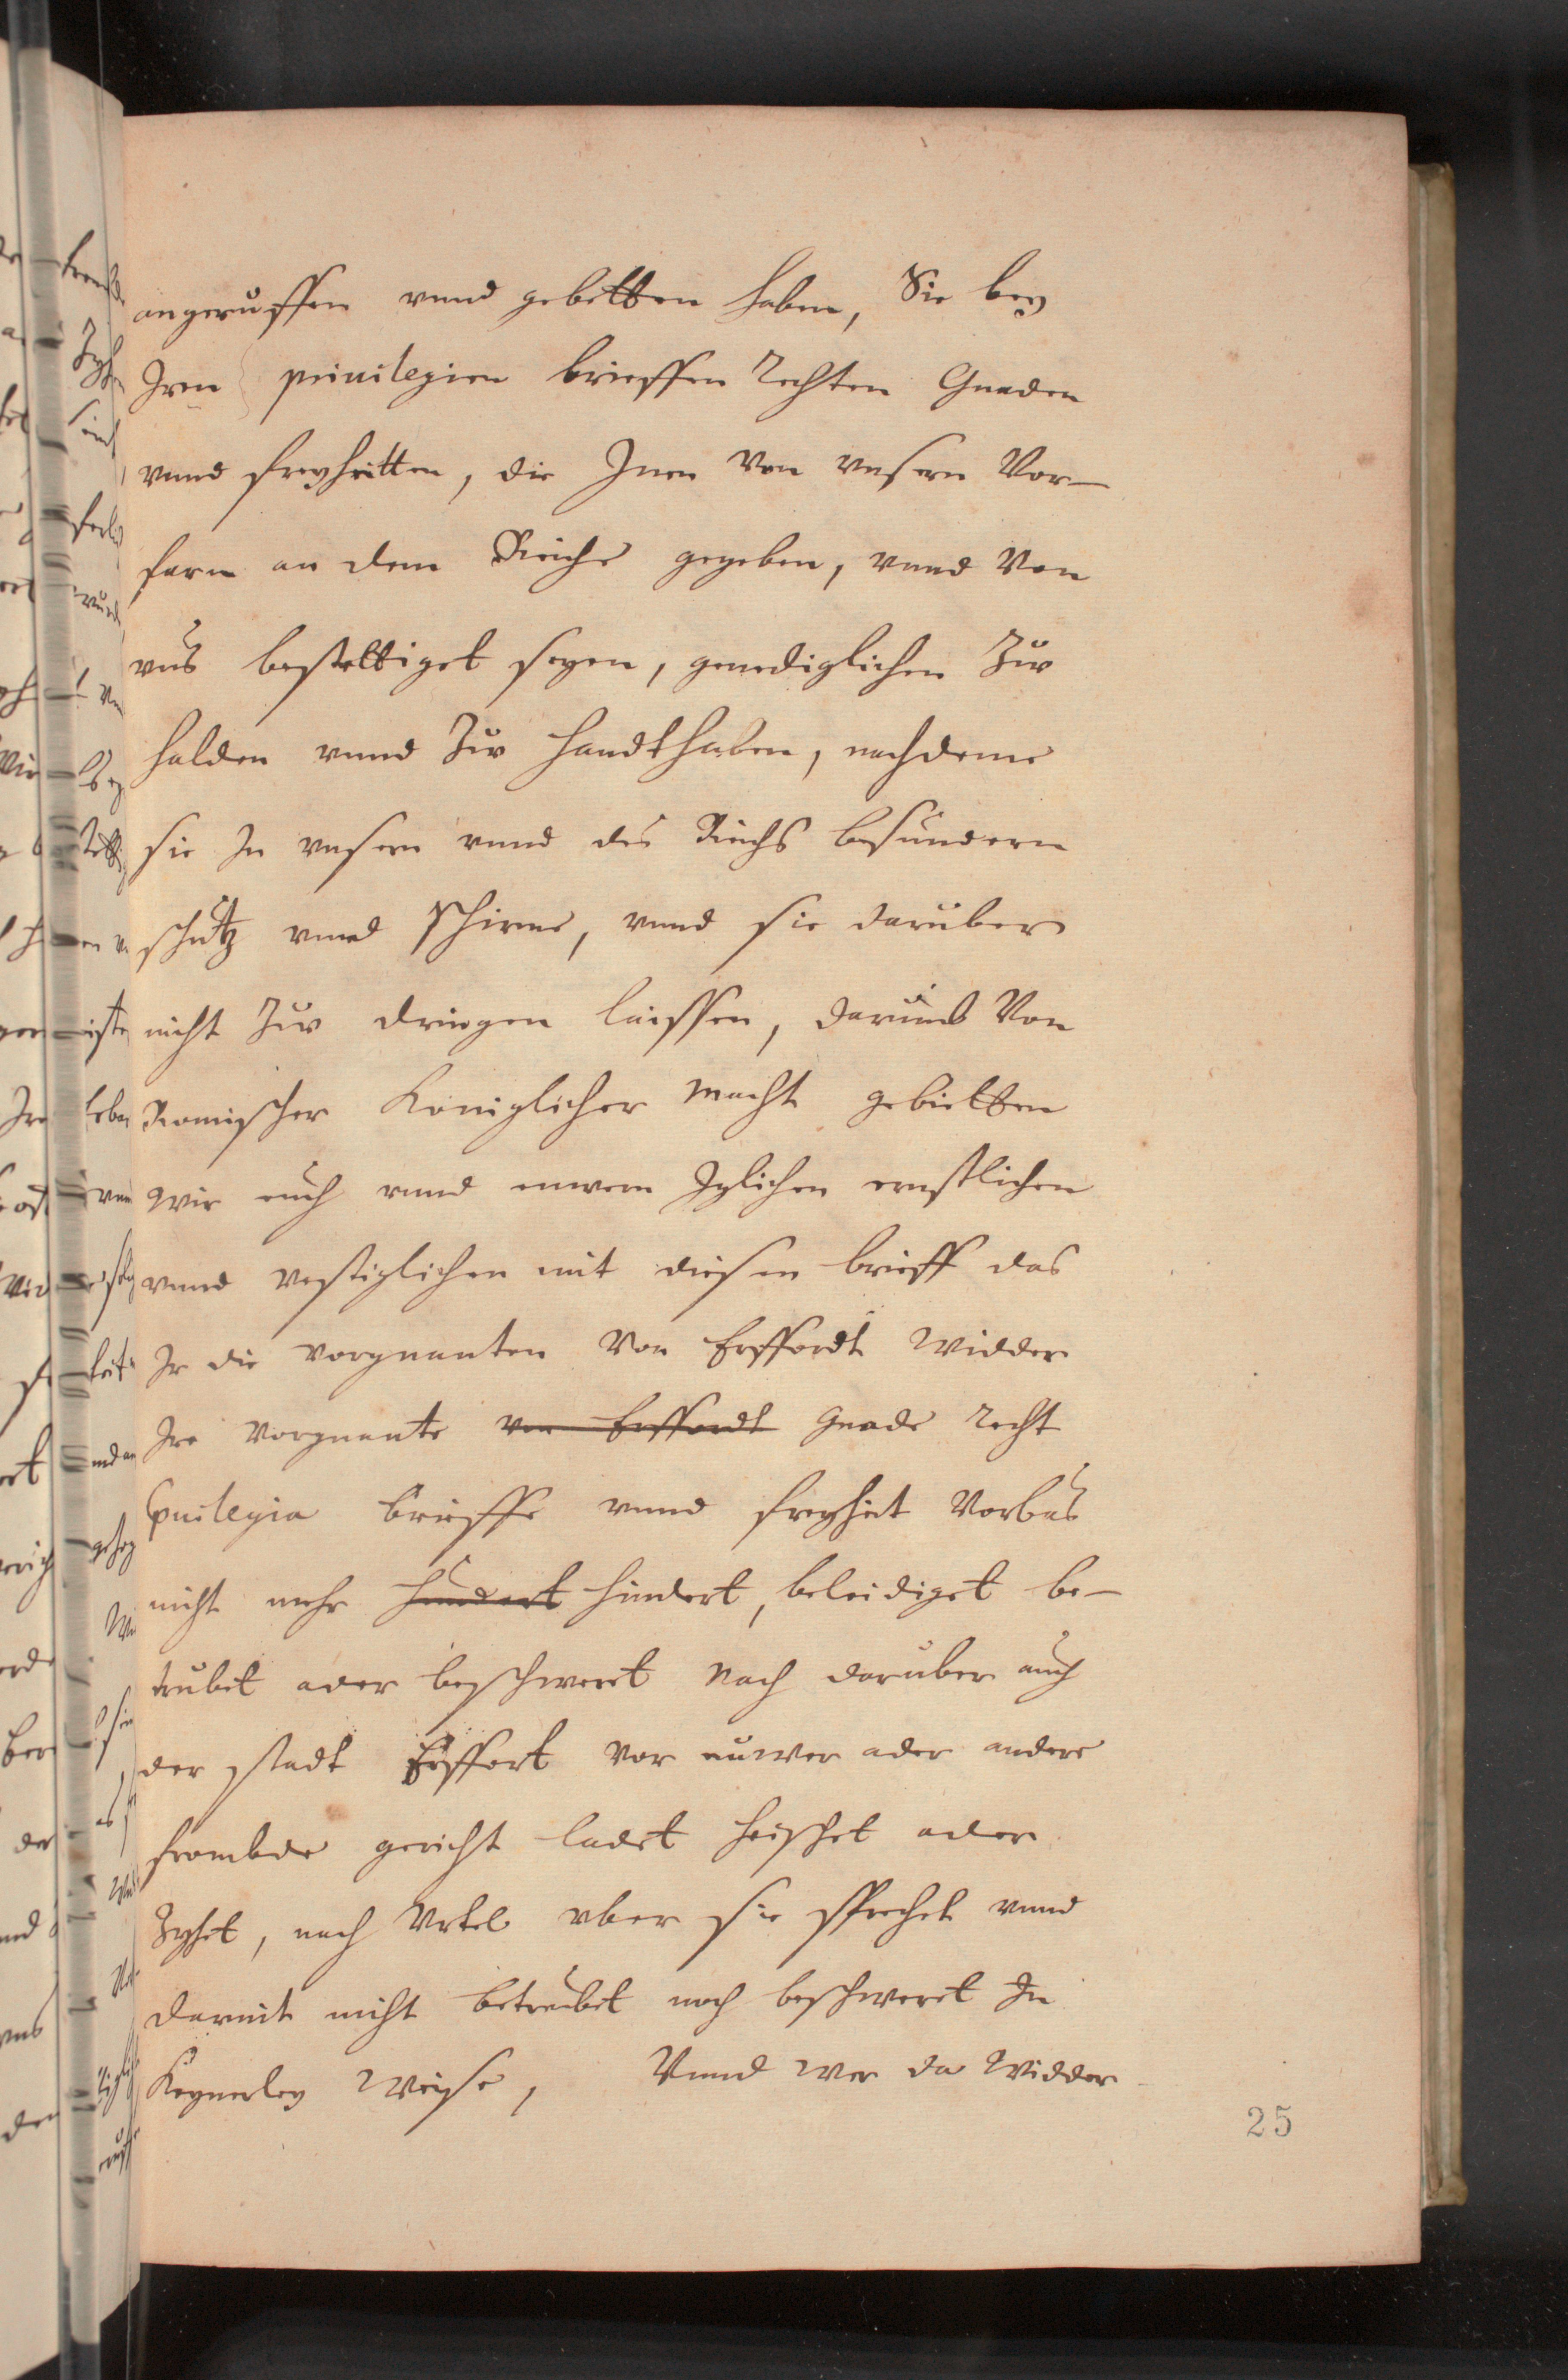 angeruffen vnnd gebetten haben, Sie bey
Iren priuilegien brieffen rechten Gnaden
vnnd freyheitten, die Inen Von vnsern Vor-
farn an dem Reiche gegeben, vnnd Von
vns bestettiget seyen, genediglichen Zuo
halden vnnd Zuo handthaben, nachdeme
sie In vnsern vnnd des Reichs besundern
schutz vnnd schirme, vnnd sie daruber
nicht Zuo dringen laissen, darumb Von
Romischer Koniglicher macht gebietten
Wir euch vnnd euwern Iglichen ernstlichen
vnnd vestiglichen mit diesem brieff das
Ir die vorgnanten Von Erffordt Widder
Ire vorgnante von Erffordt Gnade recht
priuilegia brieffe vnnd freyheit Vorbas
nicht mehr hundert hindert, beleidiget be-
trubet ader beschweret Nach daruber auch
der stadt Erffort vor euwer ader andere
frembde gericht ladet heischet ader
Zyhet, nach Vrtel vber sie sprechet vnnd
damit nicht betrubet noch beschweret In
Keynerley Weise, Vnnd wer da Widder
25